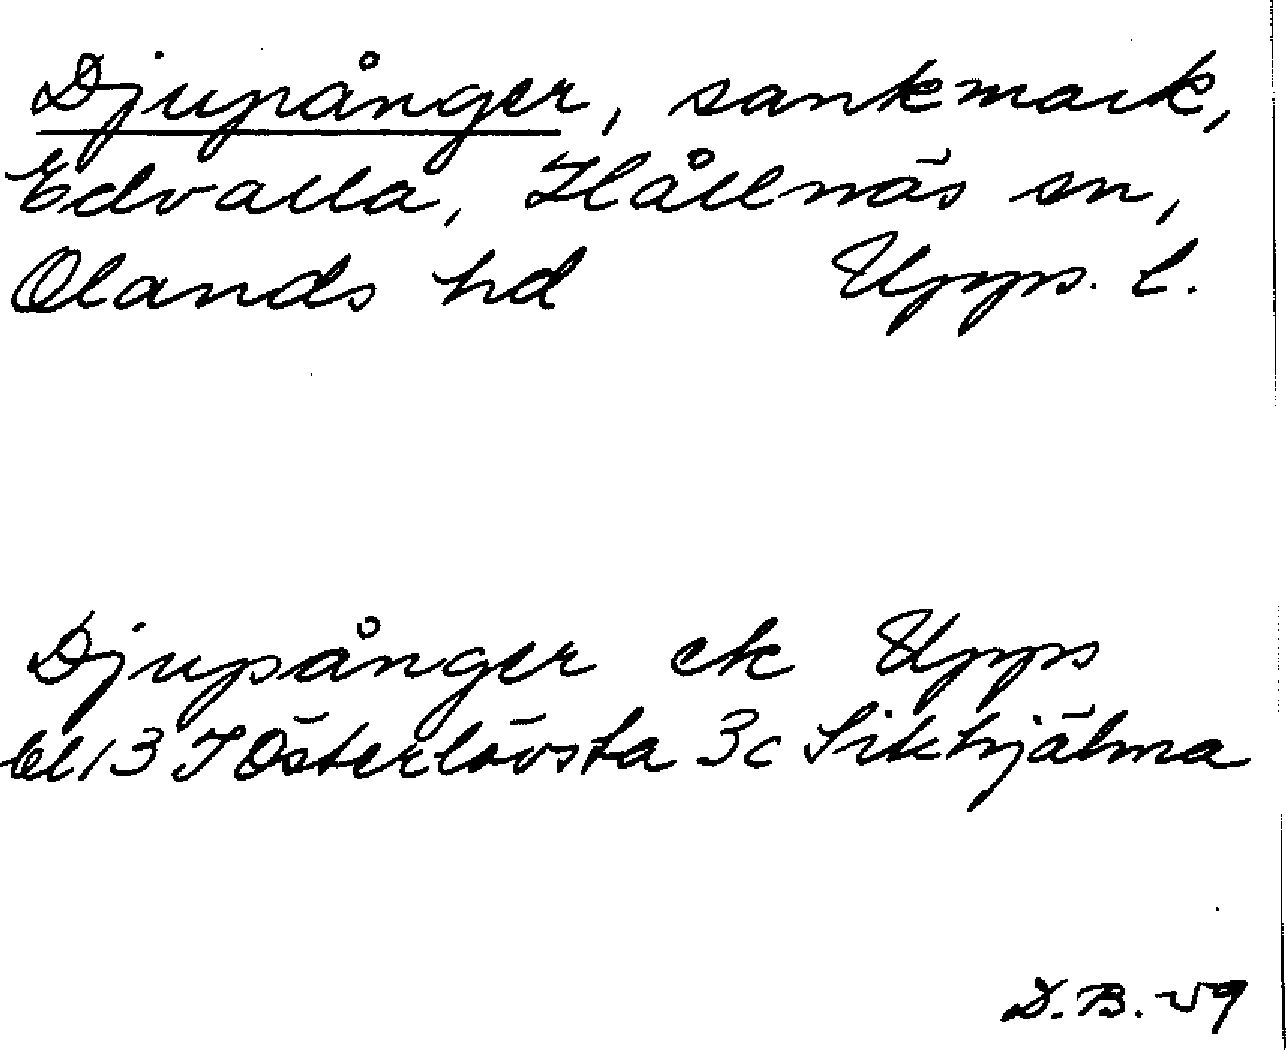 Djupånger, sankmark,
Edvalla, Hållnäs sn,
Olands hd Upps. l.
Djupånger ek Upps
bl 13 I Österlövsta 3c Sikhjälma
D.B. -59